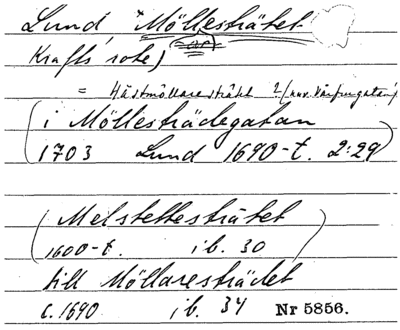 Lund Möllesträtet
Krafts rote)
= Hästmöllaresträtet ? (nuv. Vårfrugatan)
(i Möllesträdegatan
1703 Lund 1690-t. 2:29)
(Melstettesträtet
1600-t. ib. 30)
till Möllaresträdet
c. 1690 ib. 34 Nr 5856.